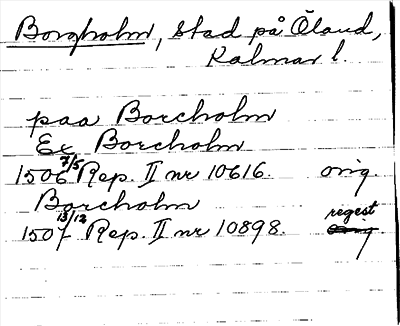 Borgholm, stad på Öland,
Kalmar l.
paa Borcholm
Ex Borcholm
1506 7/5 Rep. II nr 10616. orig.
Borcholm
regest
1507 13/12 Rep. II nr 10898. orig